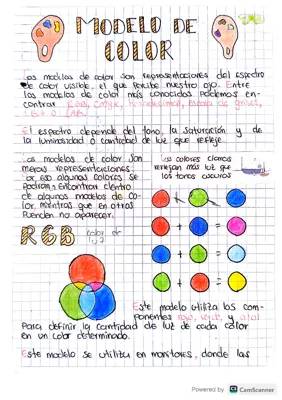 MODELO DE
COLOR
Los modelos de color son representaciones del espectro
de color visible, el que percibe nuestro ojo. Entre
los modelos de color más conocidos podemos en-
contrar RGB, CMYK,
El espectro depende del tono, la saturación y de
la luminosidad o cantidad de luz que refleje.
Los modelos de color son
meras representaciones
por eso algunos colores se
podran encontrar dentro
de algunos modelos de co-
lor, mientras que en otros
pueden no aparecer.
los colores claros
reflejan más luz que
los tonos oscuros
RGB color de
luz
+ =
+ =
+ =
+ =
Este modelo utiliza los com-
ponentes rojo, verde y azul
Para definir la cantidad de luz de cada color
en un color determinado.
Este modelo se utiliza en monitores, donde las
Powered by CS CamScanner